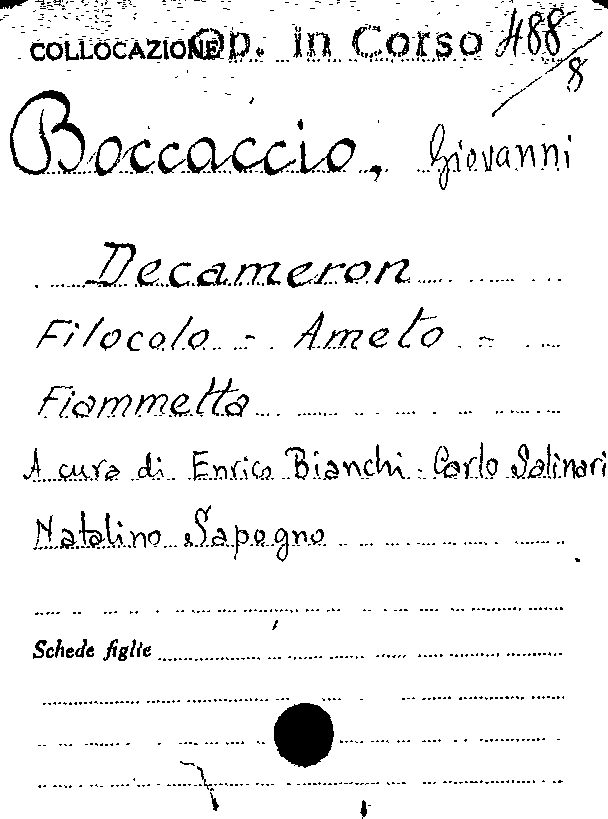 COLLOCAZIONE Op. in Corso 488/8
Boccaccio, Giovanni
Decameron
Filocolo - Ameto -
Fiammetta
A cura di Enrico Bianchi - Carlo Salinari
Natalino Sapogno
Schede figlie